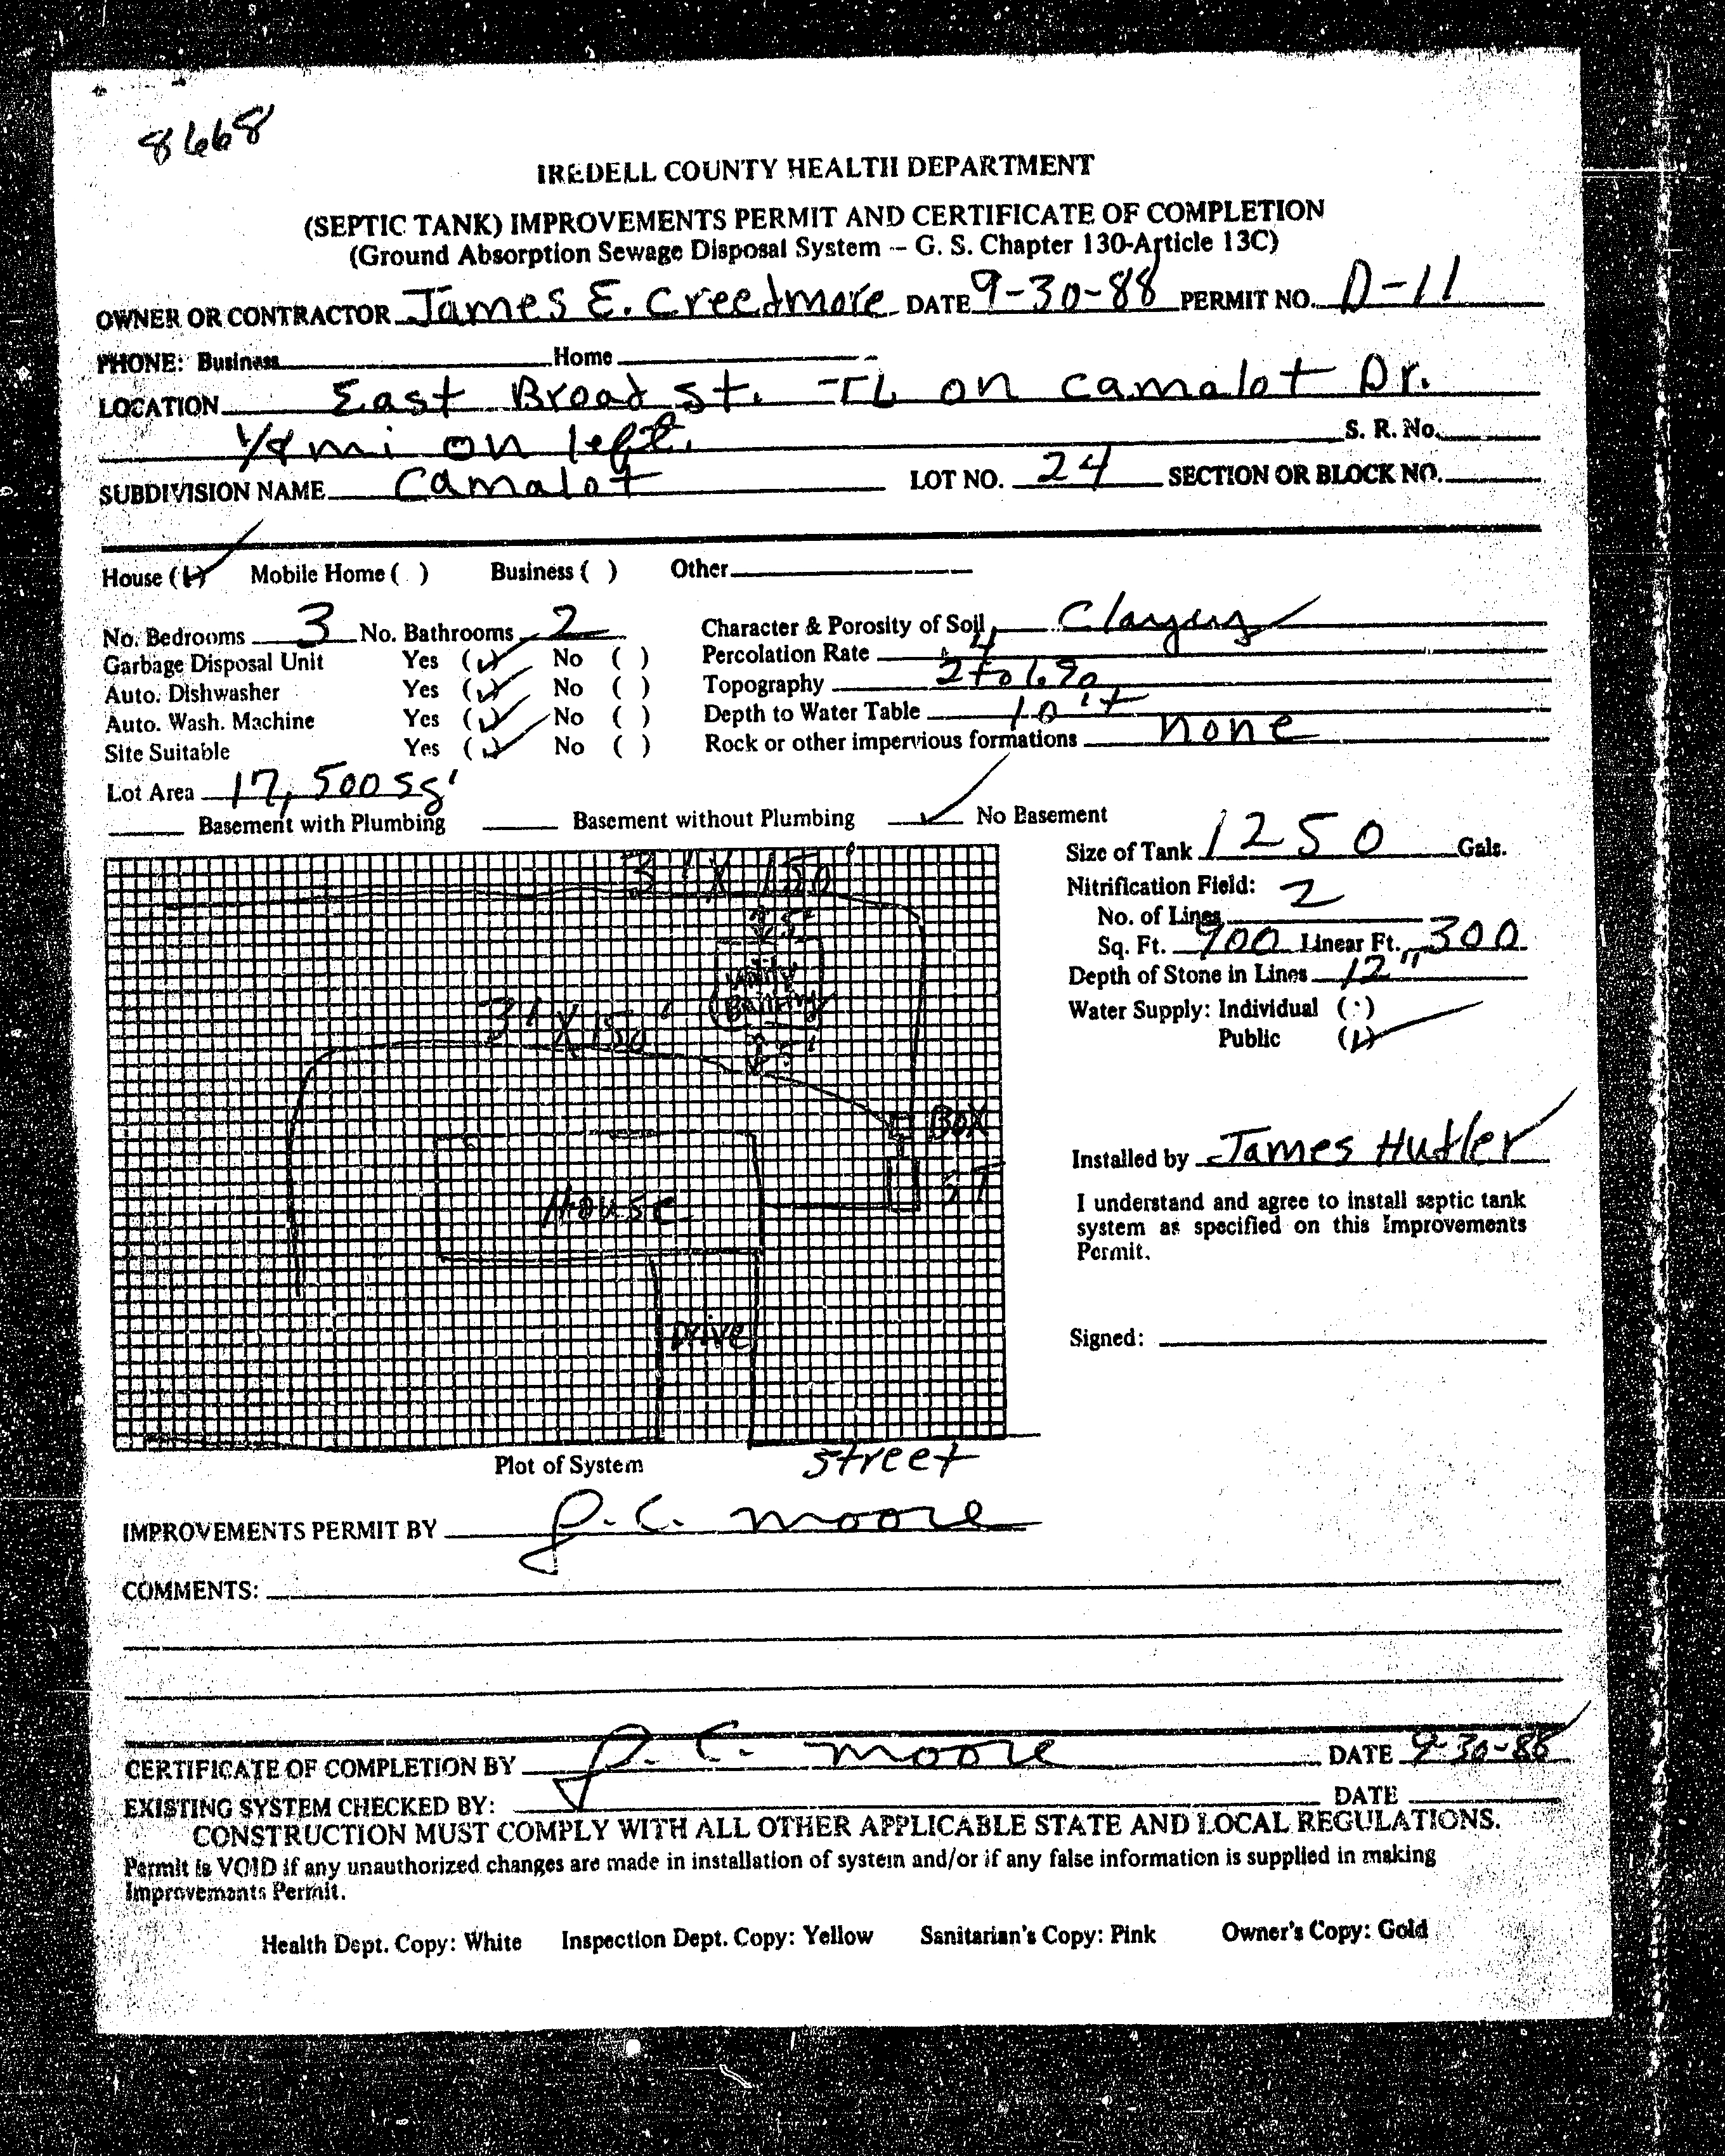 8668
IREDELL COUNTY HEALTH DEPARTMENT
(SEPTIC TANK) IMPROVEMENTS PERMIT AND CERTIFICATE OF COMPLETION
(Ground Absorption Sewage Disposal System -- G. S. Chapter 130-Article 13C)
OWNER OR CONTRACTOR James E. Creedmore DATE 9-30-88 PERMIT NO. D-11
PHONE: Business Home
LOCATION East Broad st. TL on camalot Dr.
mi on left. S. R. No.
SUBDIVISION NAME Camalot LOT NO. 24 SECTION OR BLOCK NO.
House (✓) Mobile Home ( ) Business ( ) Other
No. Bedrooms 3 No. Bathrooms 2 Character & Porosity of Soil
Garbage Disposal Unit Yes (✓) No ( ) Percolation Rate
Auto. Dishwasher Yes (✓) No ( ) Topography 2 to 6%
Auto. Wash. Machine Yes (✓) No ( ) Depth to Water Table 10'+
Site Suitable Yes (✓) No ( ) Rock or other impervious formations none
Lot Area 17,500 sq'
Basement with Plumbing Basement without Plumbing ✓ No Basement
Size of Tank 1250 Gals.
Nitrification Field:
No. of Lines 2
Sq. Ft. 900 Linear Ft. 300
Depth of Stone in Lines 12"
Water Supply: Individual ( )
Public (✓)
3' X 150'
25'
Utility
Building
3' X 150'
25'
Box
House
ST
Drive
Installed by James Hutler
I understand and agree to install septic tank
system as specified on this Improvements
Permit.
Signed:
Plot of System street
IMPROVEMENTS PERMIT BY J. C. Moore
COMMENTS:
CERTIFICATE OF COMPLETION BY J. C. Moore DATE 9-30-88
EXISTING SYSTEM CHECKED BY: DATE
CONSTRUCTION MUST COMPLY WITH ALL OTHER APPLICABLE STATE AND LOCAL REGULATIONS.
Permit is VOID if any unauthorized changes are made in installation of system and/or if any false information is supplied in making
Improvements Permit.
Health Dept. Copy: White Inspection Dept. Copy: Yellow Sanitarian's Copy: Pink Owner's Copy: Gold